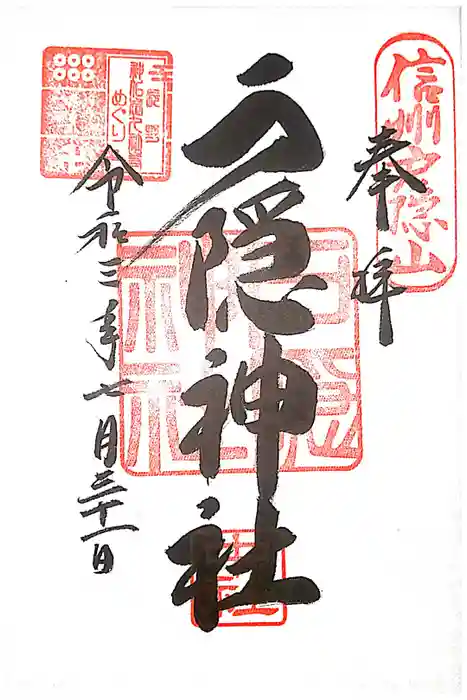 信州戸隠山
奉拝
戸隠神社
令和三年七月三十一日
戸隠
神社
めぐり